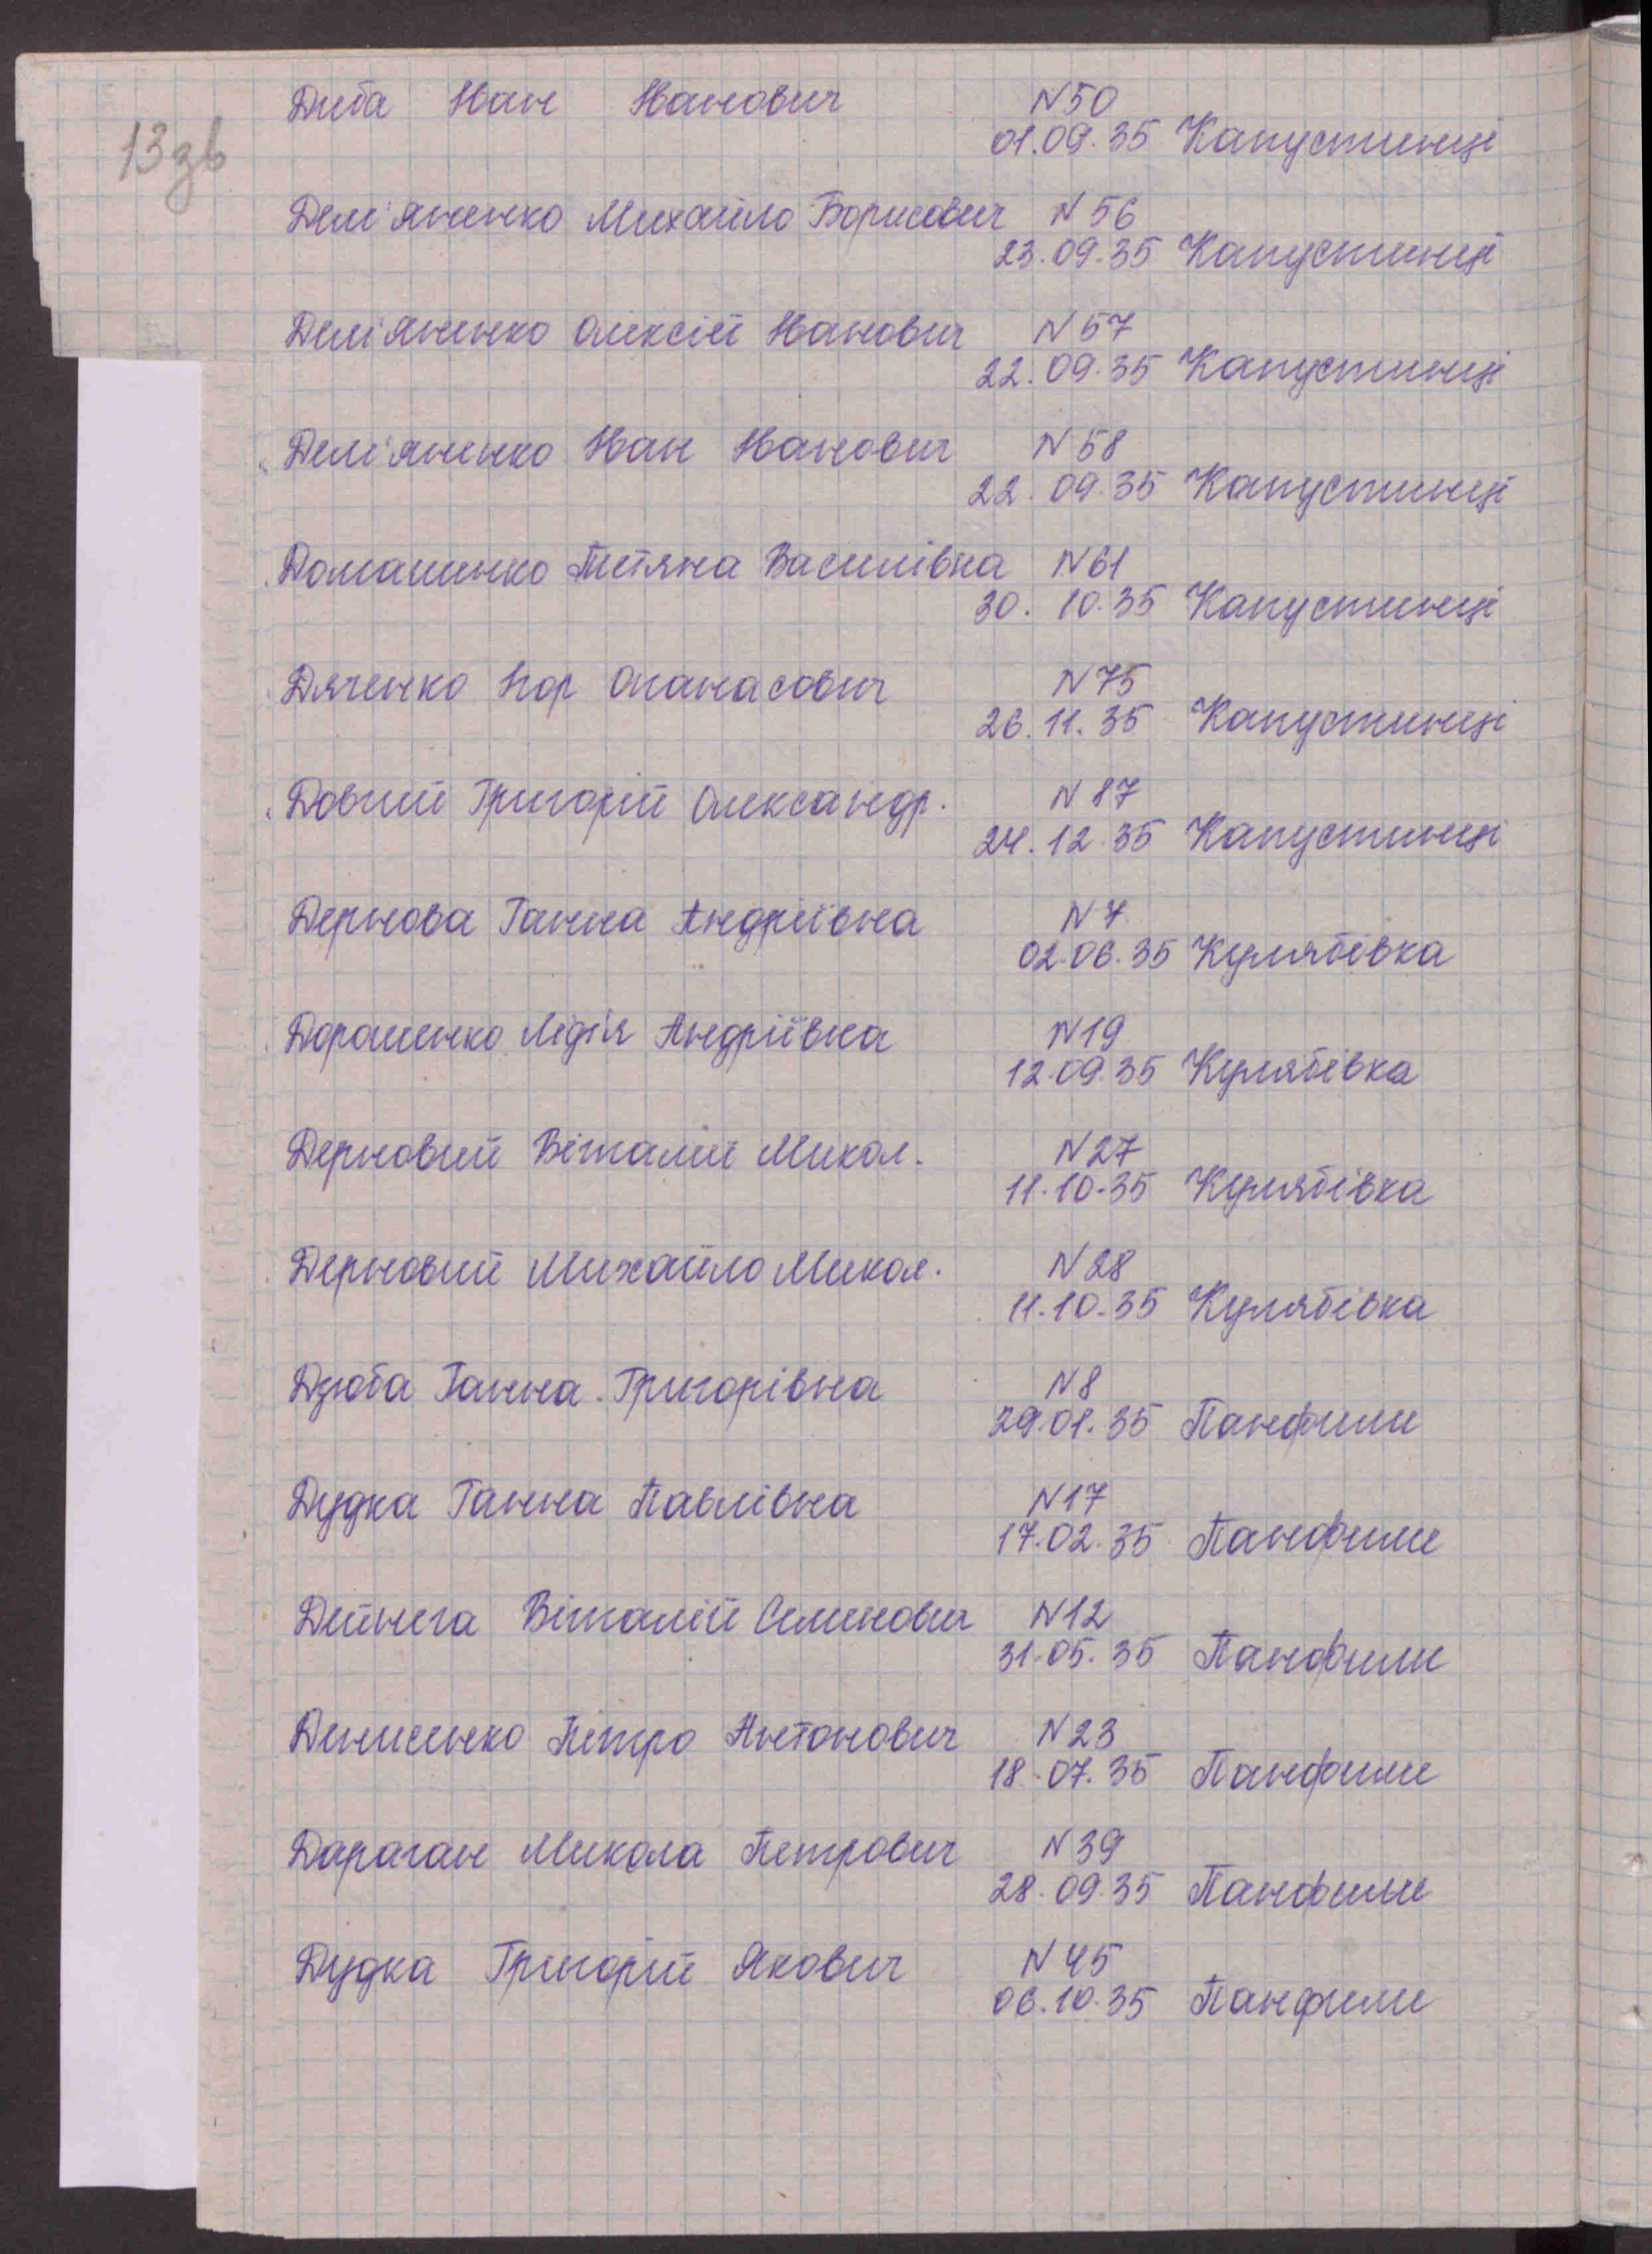 13зв
Диба Іван Іванович N50
01.09.35 Капустинці
Дем'яненко Михайло Борисович N 56
23.09.35 Капустинці
Дем'яненко Олексій Іванович N 57
22.09.35 Капустинці
Дем'яненко Іван Іванович N 58
22.09.35 Капустинці
Домашенко Тетяна Василівна N61
30.10.35 Капустинці
Дяченко Ігор Опанасович N75
26.11.35 Капустинці
Довгий Григорій Олександр. N 87
24.12.35 Капустинці
Дернова Ганна Андріївна N 7
02.06.35 Кулябівка
Дорошенко Лідія Андріївна N19
12.09.35 Кулябівка
Дерновий Віталій Микол. N27
11.10.35 Кулябівка
Дерновий Михайло Микол. N28
11.10.35 Кулябівка
Дзюба Ганна Григорівна N8
29.01.35 Панфили
Дудка Ганна Павлівна N17
17.02.35 Панфили
Дейнега Віталій Семенович N12
31.05.35 Панфили
Денисенко Петро Антонович N23
18.07.35 Панфили
Дараган Микола Петрович N 39
28.09.35 Панфили
Дудка Григорій Якович N 45
06.10.35 Панфили